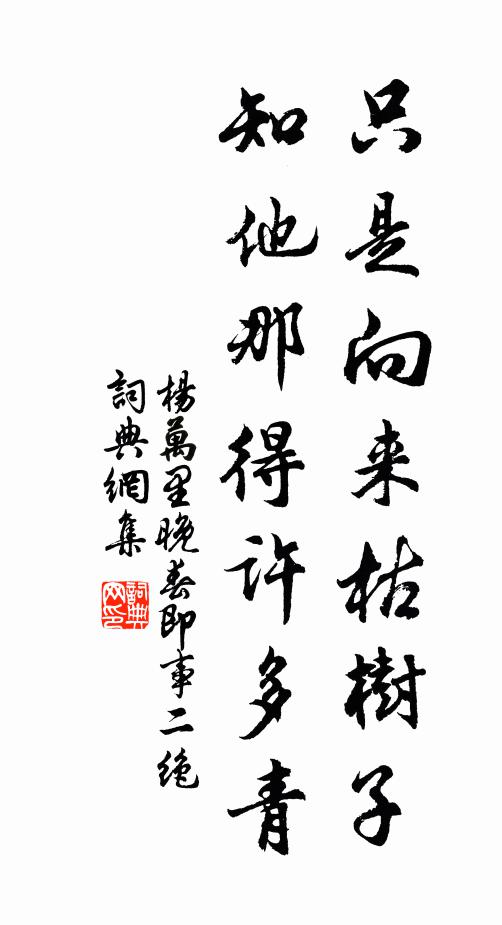 只是向来枯樹子
知他那得许多青
楊萬里晚春即事二绝
詞典網集
詞典
网印